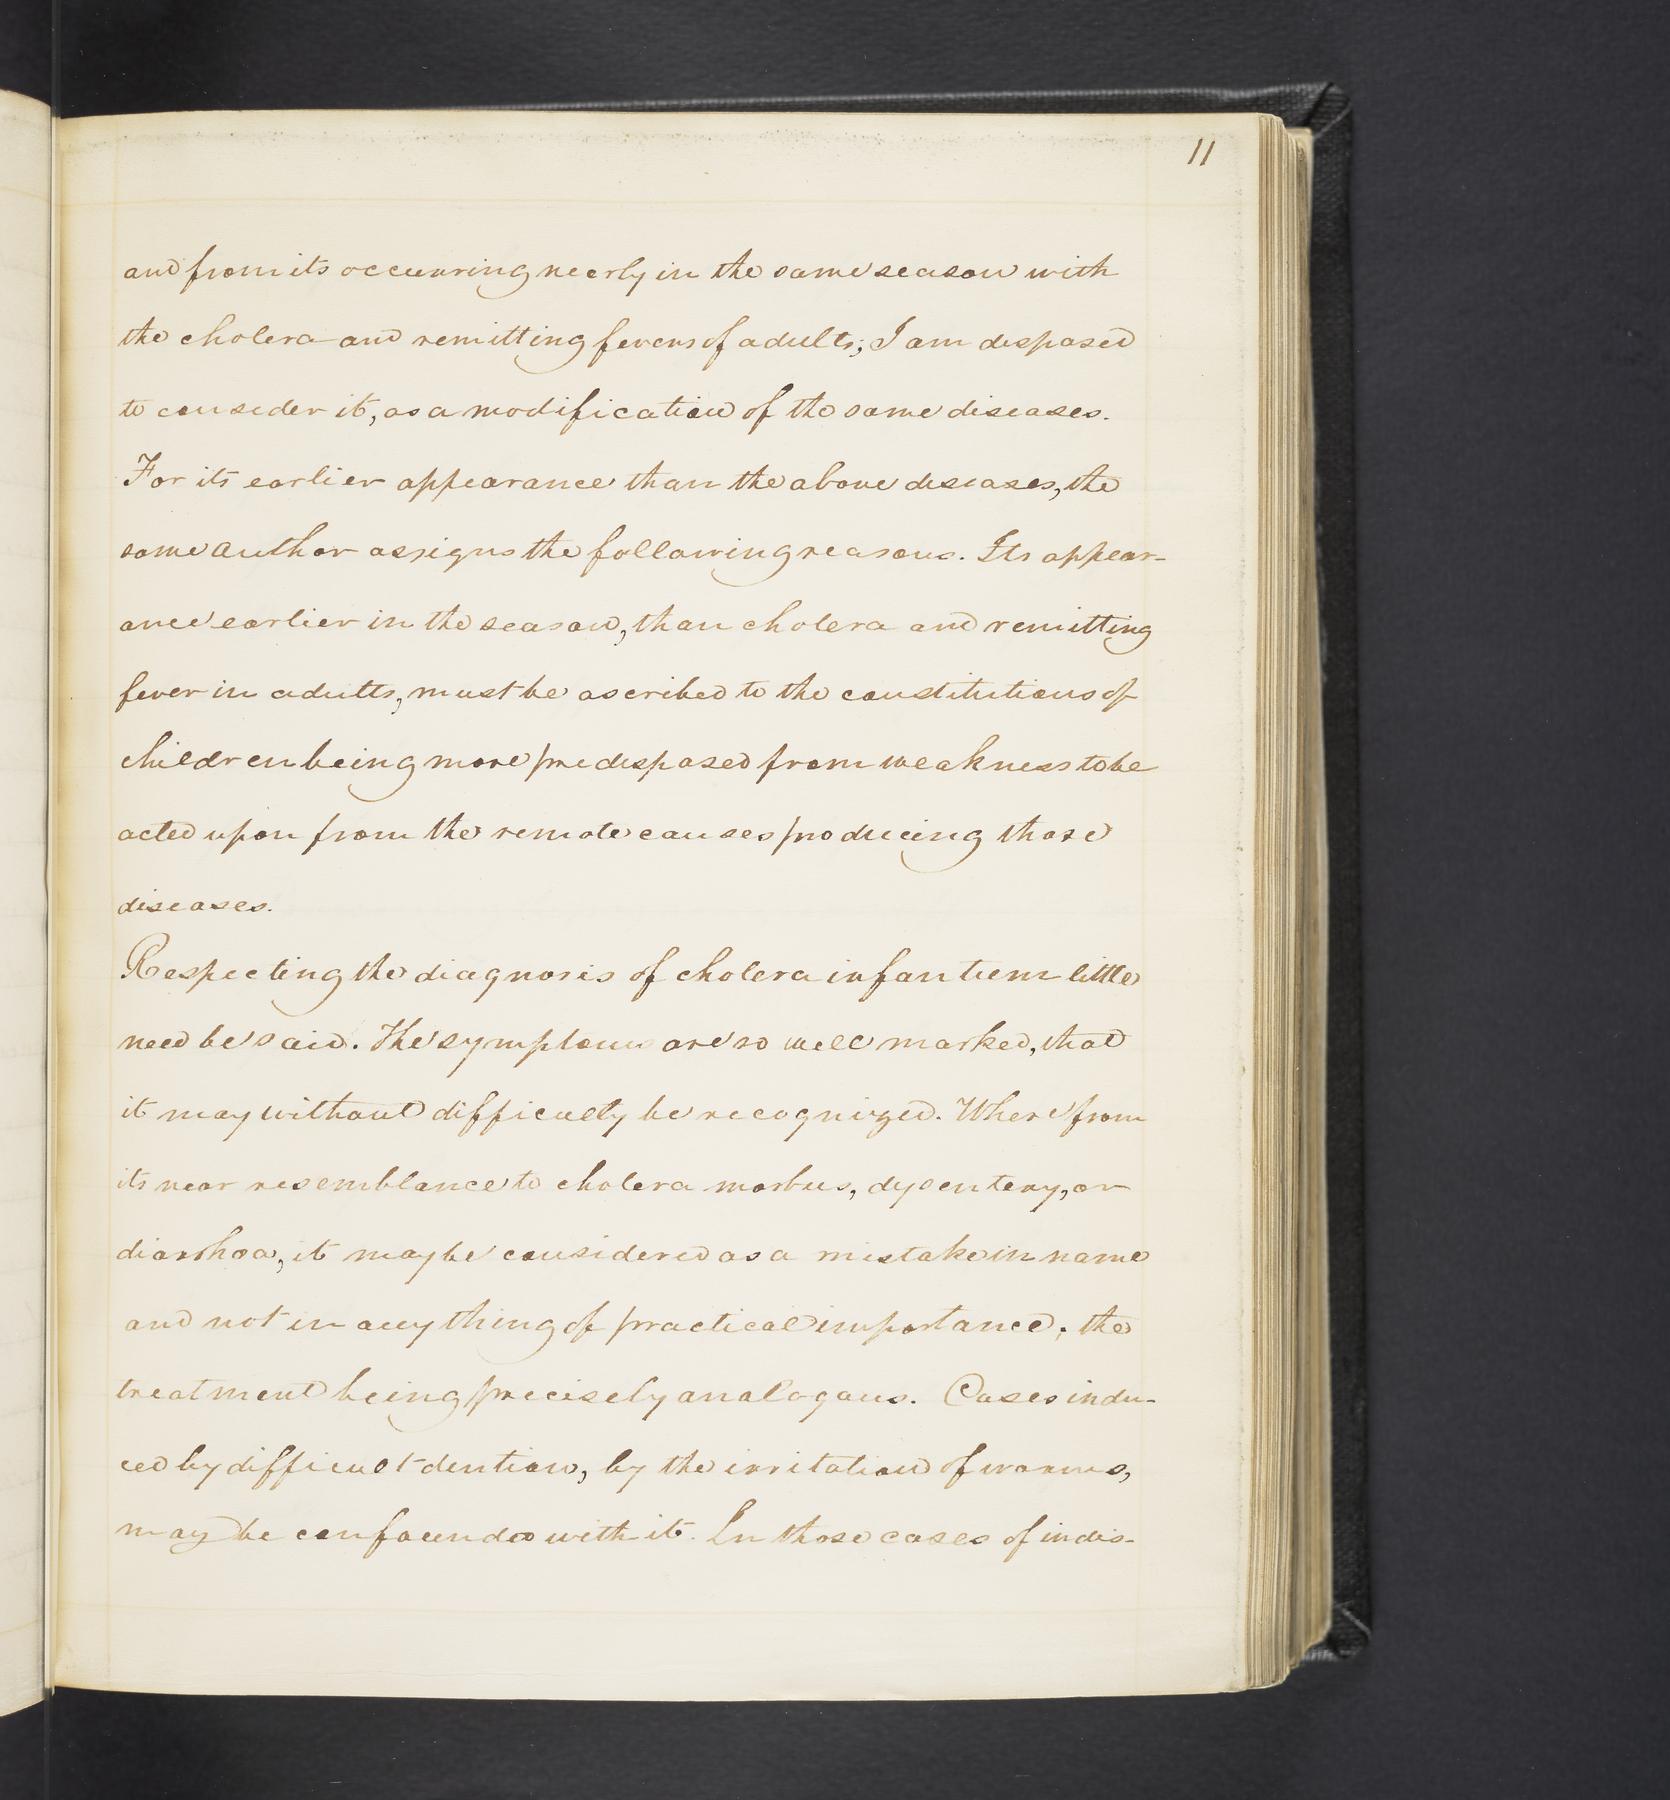 11
and from its occurring nearly in the same season with
the cholera and remitting fevers of adults; I am disposed
to consider it, as a modification of the same diseases.
For its earlier appearance than the above diseases, the
same author assigns the following reasons. Its appear-
ance earlier in the season, than cholera and remitting
fever in adults, must be ascribed to the constitutions of
children being more predisposed from weakness to be
acted upon from the remote causes producing those
diseases.
Respecting the diagnosis of cholera infantum little
need be said. The symptoms are so well marked, that
it may without difficulty be recognized. Where from
its near resemblance to cholera morbus, dysentery, or
diarrhoa, it may be considered as a mistake in name
and not in any thing of practical importance; the
treatment being precisely analogous. Cases indu-
ced by difficult dention, by the irritation of worms,
may be confounded with it. In those cases of indis-